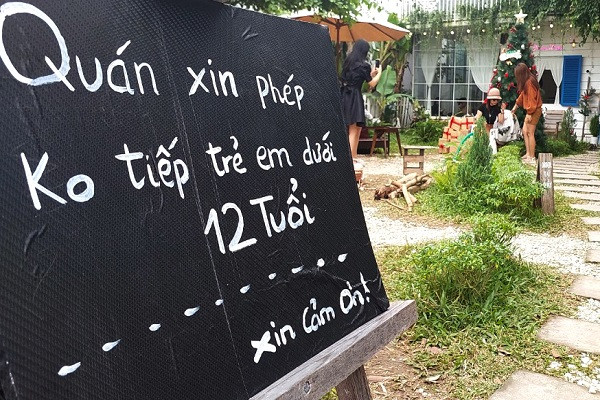 Quán xin phép
Ko tiếp trẻ em dưới
12 Tuổi
xin cảm ơn!